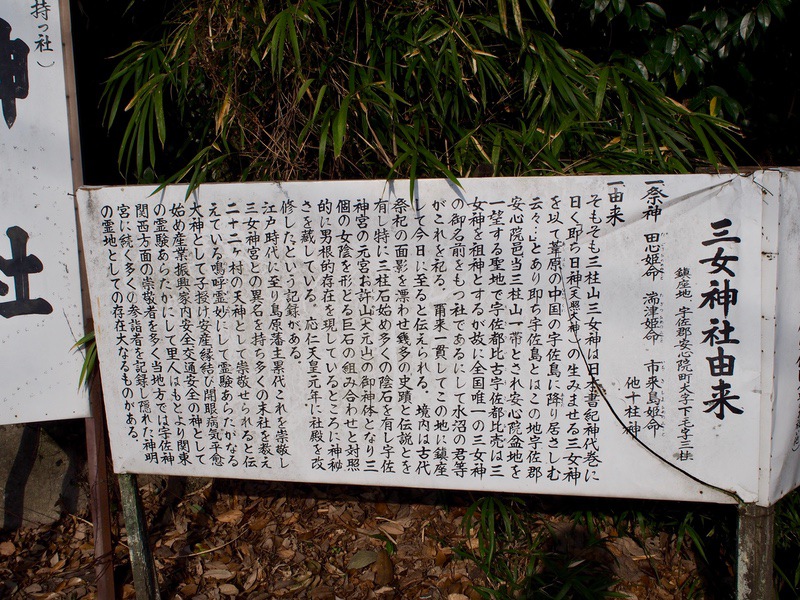 三女神社由来
鎮座地 宇佐郡安心院町大字下毛字三柱
一祭神 田心姫命 湍津姫命 市来島姫命
他十柱神
一由来
そもそも三柱山三女神は日本書紀神代巻に
曰く即ち日神(天照大神)の生みませる三女神
を以て葦原の中国の宇佐島に降り居さしむ
云々…とあり即ち宇佐島とはこの地宇佐郡
安心院邑当三柱山一帯とされ安心院盆地を
一望する聖地で宇佐都比古宇佐都比売は三
女神を祖神とするが故に全国唯一の三女神
の御名前をもつ社であるにして水沼の君等
がこれを祀る。爾来一貫してこの地に鎮座
して今日に至ると伝えられる。境内は古代
祭祀の面影を漂わせ幾多の史蹟と伝説とを
有し特に三柱石始め多くの陰石を有し宇佐
神宮の元宮お許山(大元山)の御神体となり三
個の女陰を形どる巨石の組み合わせと対照
的に男根的存在を現しているところに神秘
さを蔵している。応仁天皇元年に社殿を改
修したという記録がある。
江戸時代に至り島原藩主累代これを崇敬し
三女神宮との異名を持ち多くの末社を数え
二十二ヶ村の大神として崇敬せられると伝
えている嗚呼霊妙にして霊験あらたかなる
大神として子授け安産縁結び開眼病気平愈
始め産業振興家内安全交通安全の神として
の霊験あらたかにして里人はもとより関東
関西方面の崇敬者を多く当地方では宇佐神
宮に続く多くの参詣者を記録し隠れた神明
の霊地としての存在大なるものがある。
持つ社)
神
社